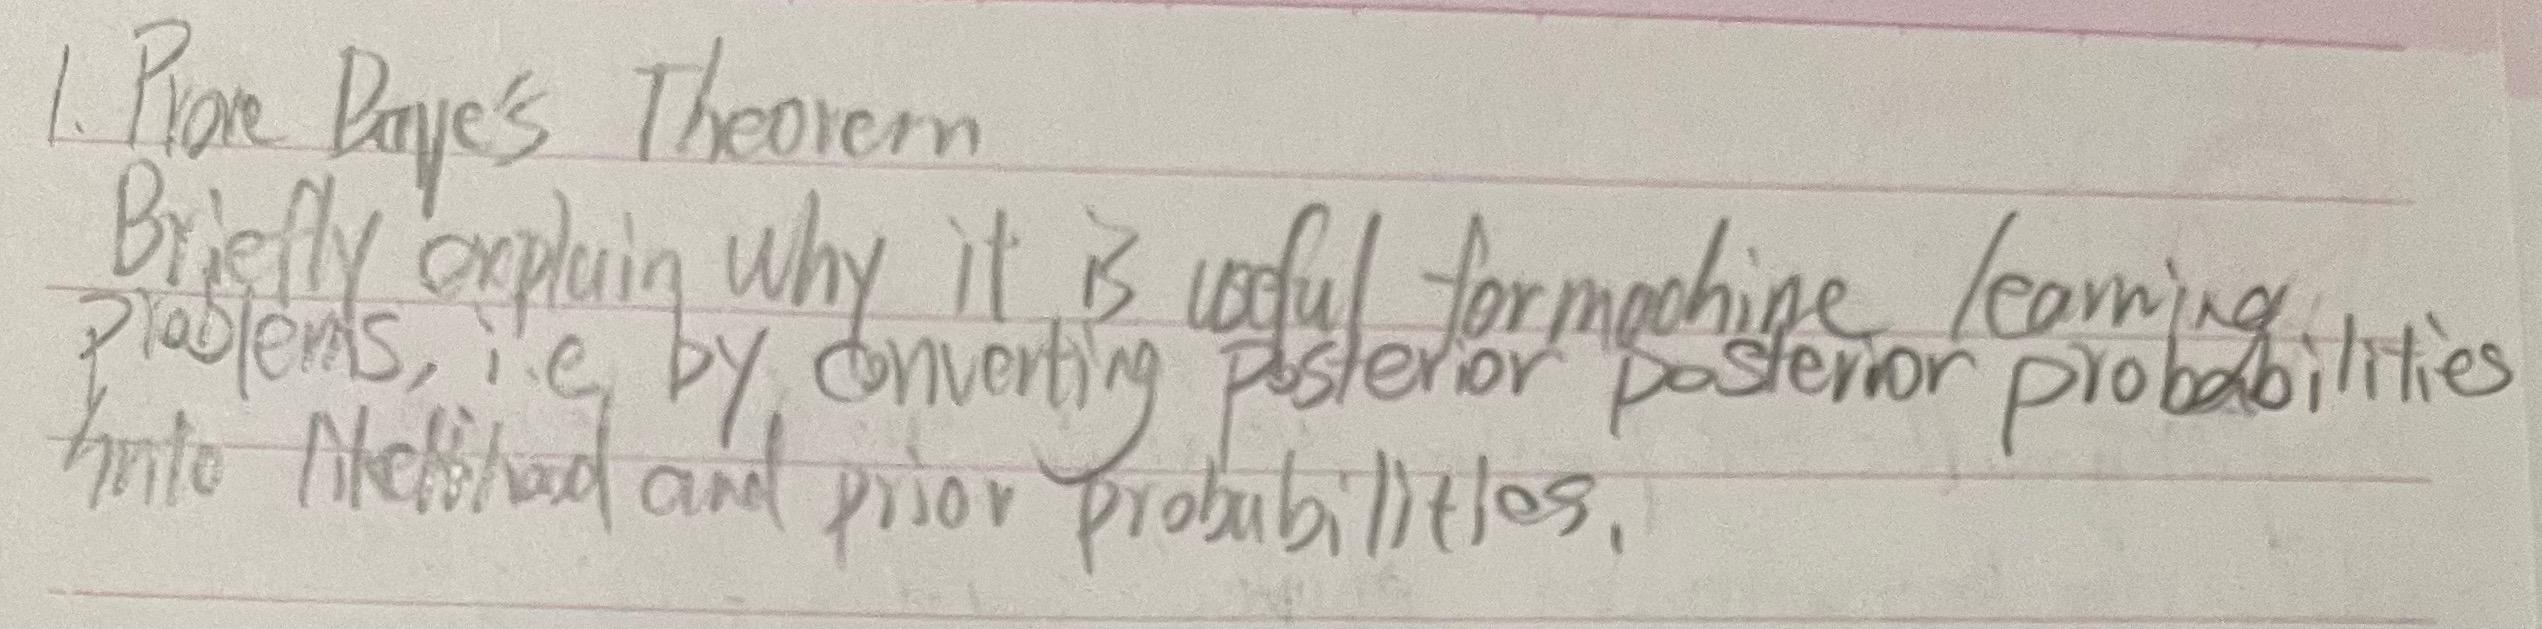 1. Prove Baye's Theorem
Briefly explain why it is useful for machine learning
problems, i.e, by converting posterior posterior probabilities
into likelihood and prior probabilities.